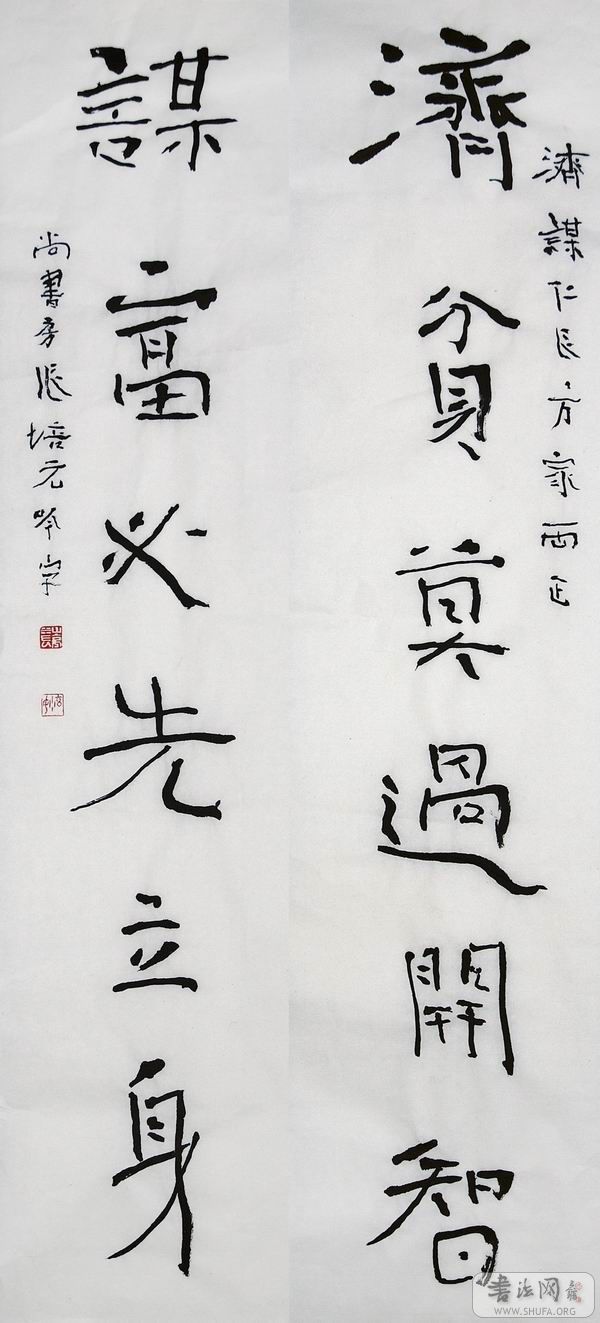 濟謀仁長方家两正
濟貧莫過開智
謀富必先立身
尚書房張培元吟字
書法网
WWW.SHUFA.ORG